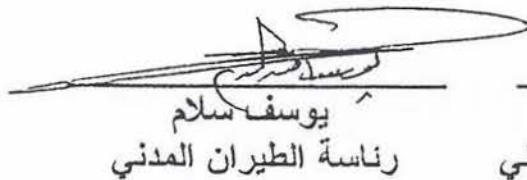 يوسف سلام
رئاسة الطيران المدني
لي